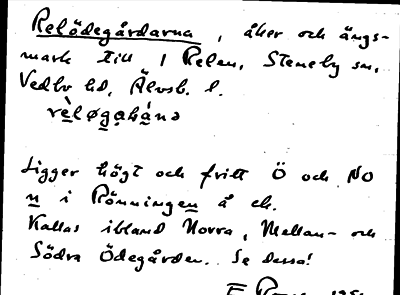 Relödegårdarna, åker och ängs-
mark till 1 Relen, Steneby sn,
Vedbo hd, Älvsb. l.
rèløgahánə
Ligger högt och fritt Ö och NO
n i Rönningen å ek.
Kallas ibland Norra, Mellan- och
Södra Ödegården. Se dessa!